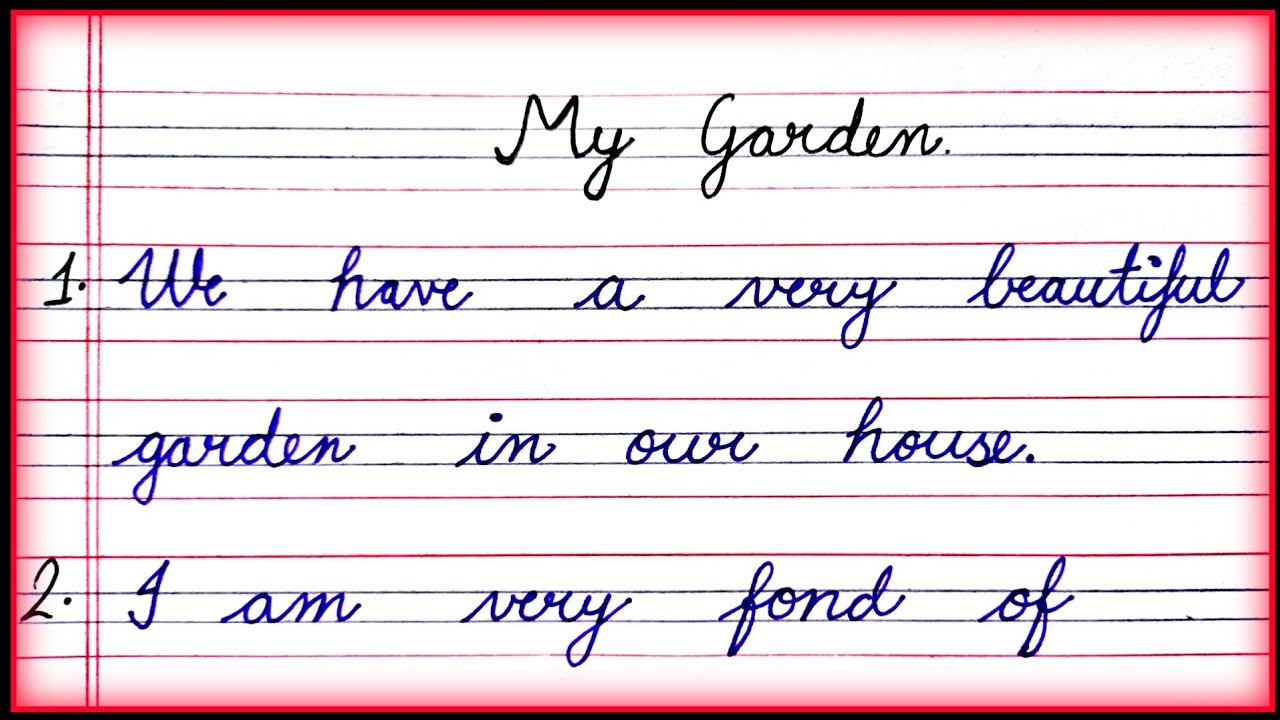 My Garden.
1. We have a very beautiful
garden in our house.
2. I am very fond of